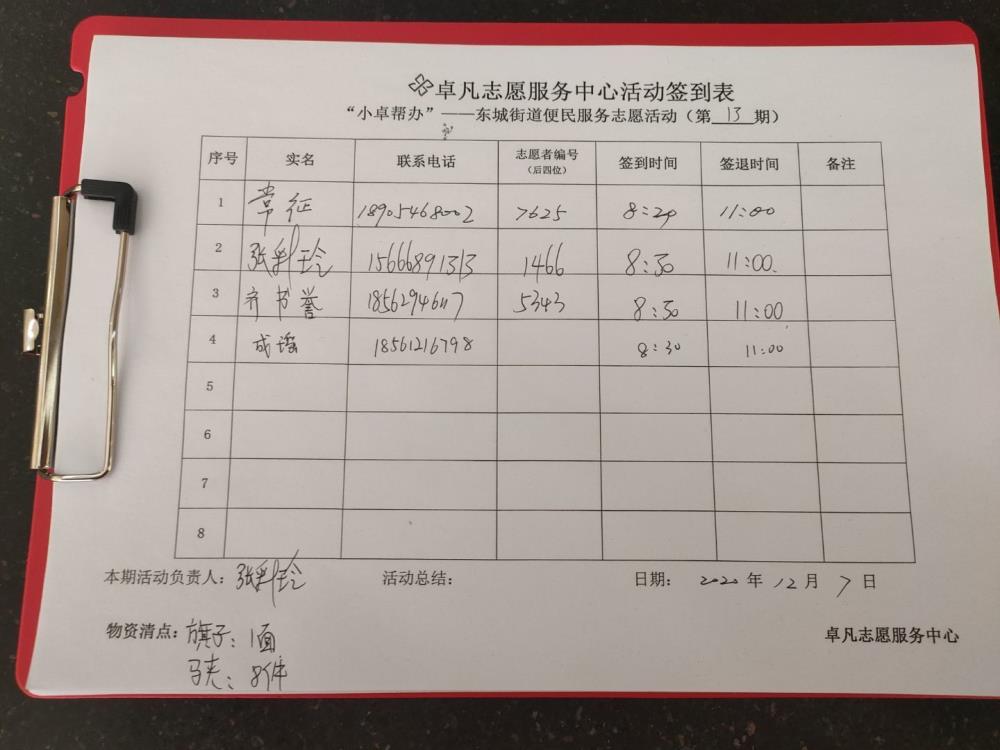 卓凡志愿服务中心活动签到表
“小卓帮办”——东城街道便民服务志愿活动（第 13 期）
序号 实名 联系电话 志愿者编号（后四位） 签到时间 签退时间 备注
1 常征 18905468002 7625 8:20 11:00
2 张利玲 15666891313 1466 8:30 11:00.
3 齐书誉 18562946117 5343 8:30 11:00
4 成瑶 18561216798 8:30 11:00
5
6
7
8
本期活动负责人：张利玲 活动总结： 日期： 2020 年 12 月 7 日
物资清点：旗子：1面 卓凡志愿服务中心
马夹：8件